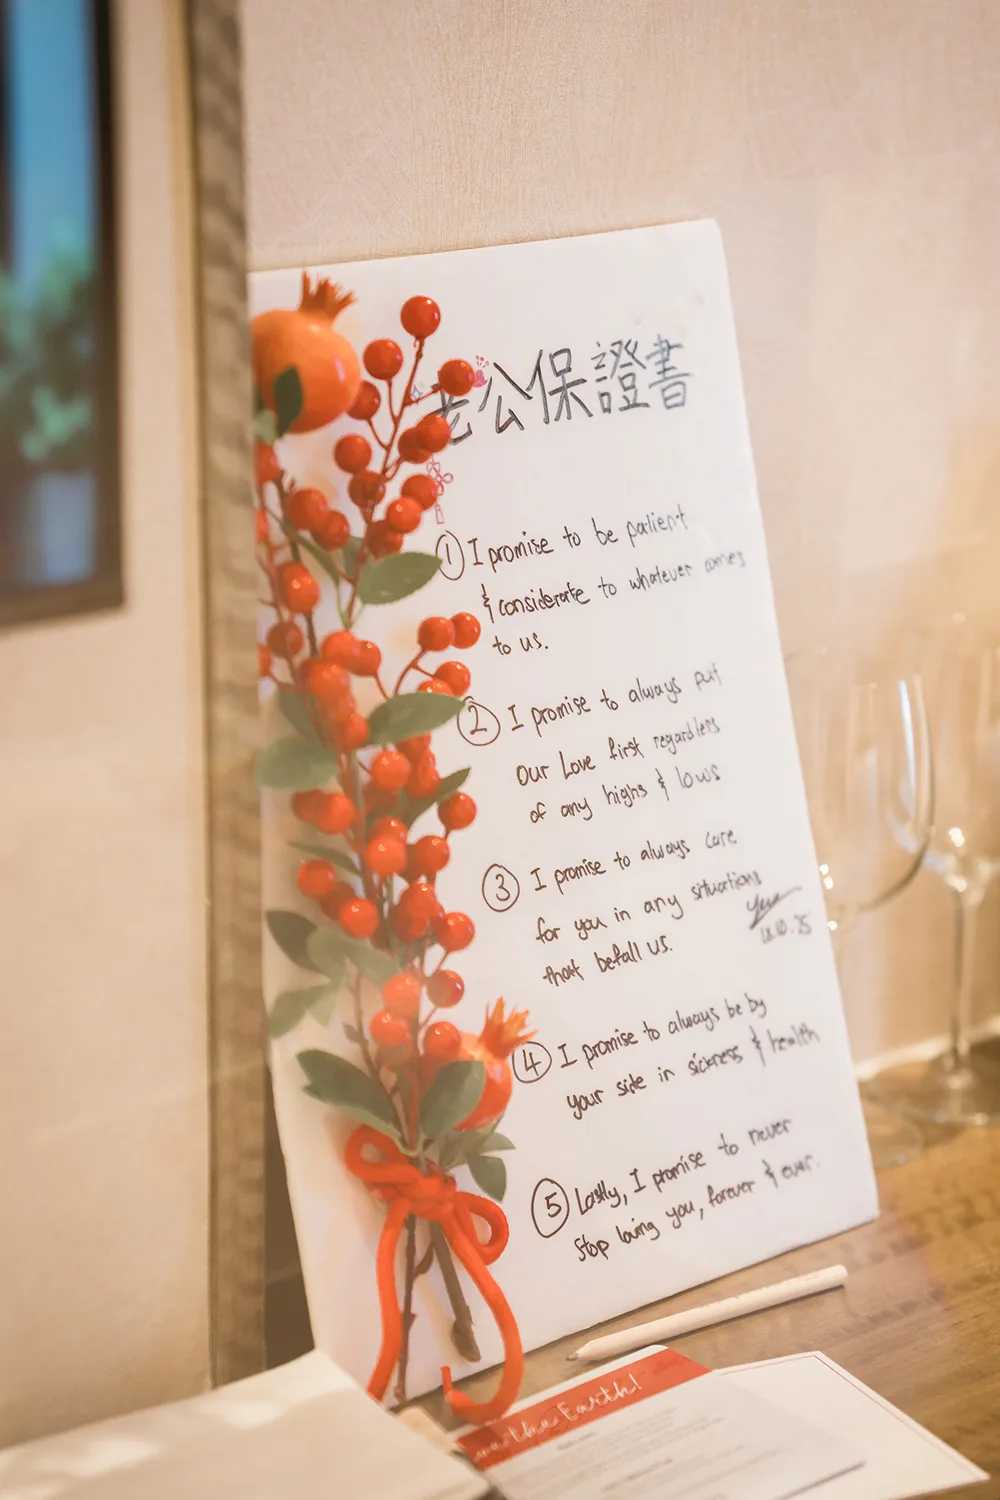 老公保證書
① I promise to be patient
& considerate to whatever comes
to us.
② I promise to always put
our Love first regardless
of any highs & lows
③ I promise to always care
for you in any situations
that befall us.
.10.25
④ I promise to always be by
your side in sickness & health
⑤ Lastly, I promise to never
stop loving you, forever & ever.
the Earth!